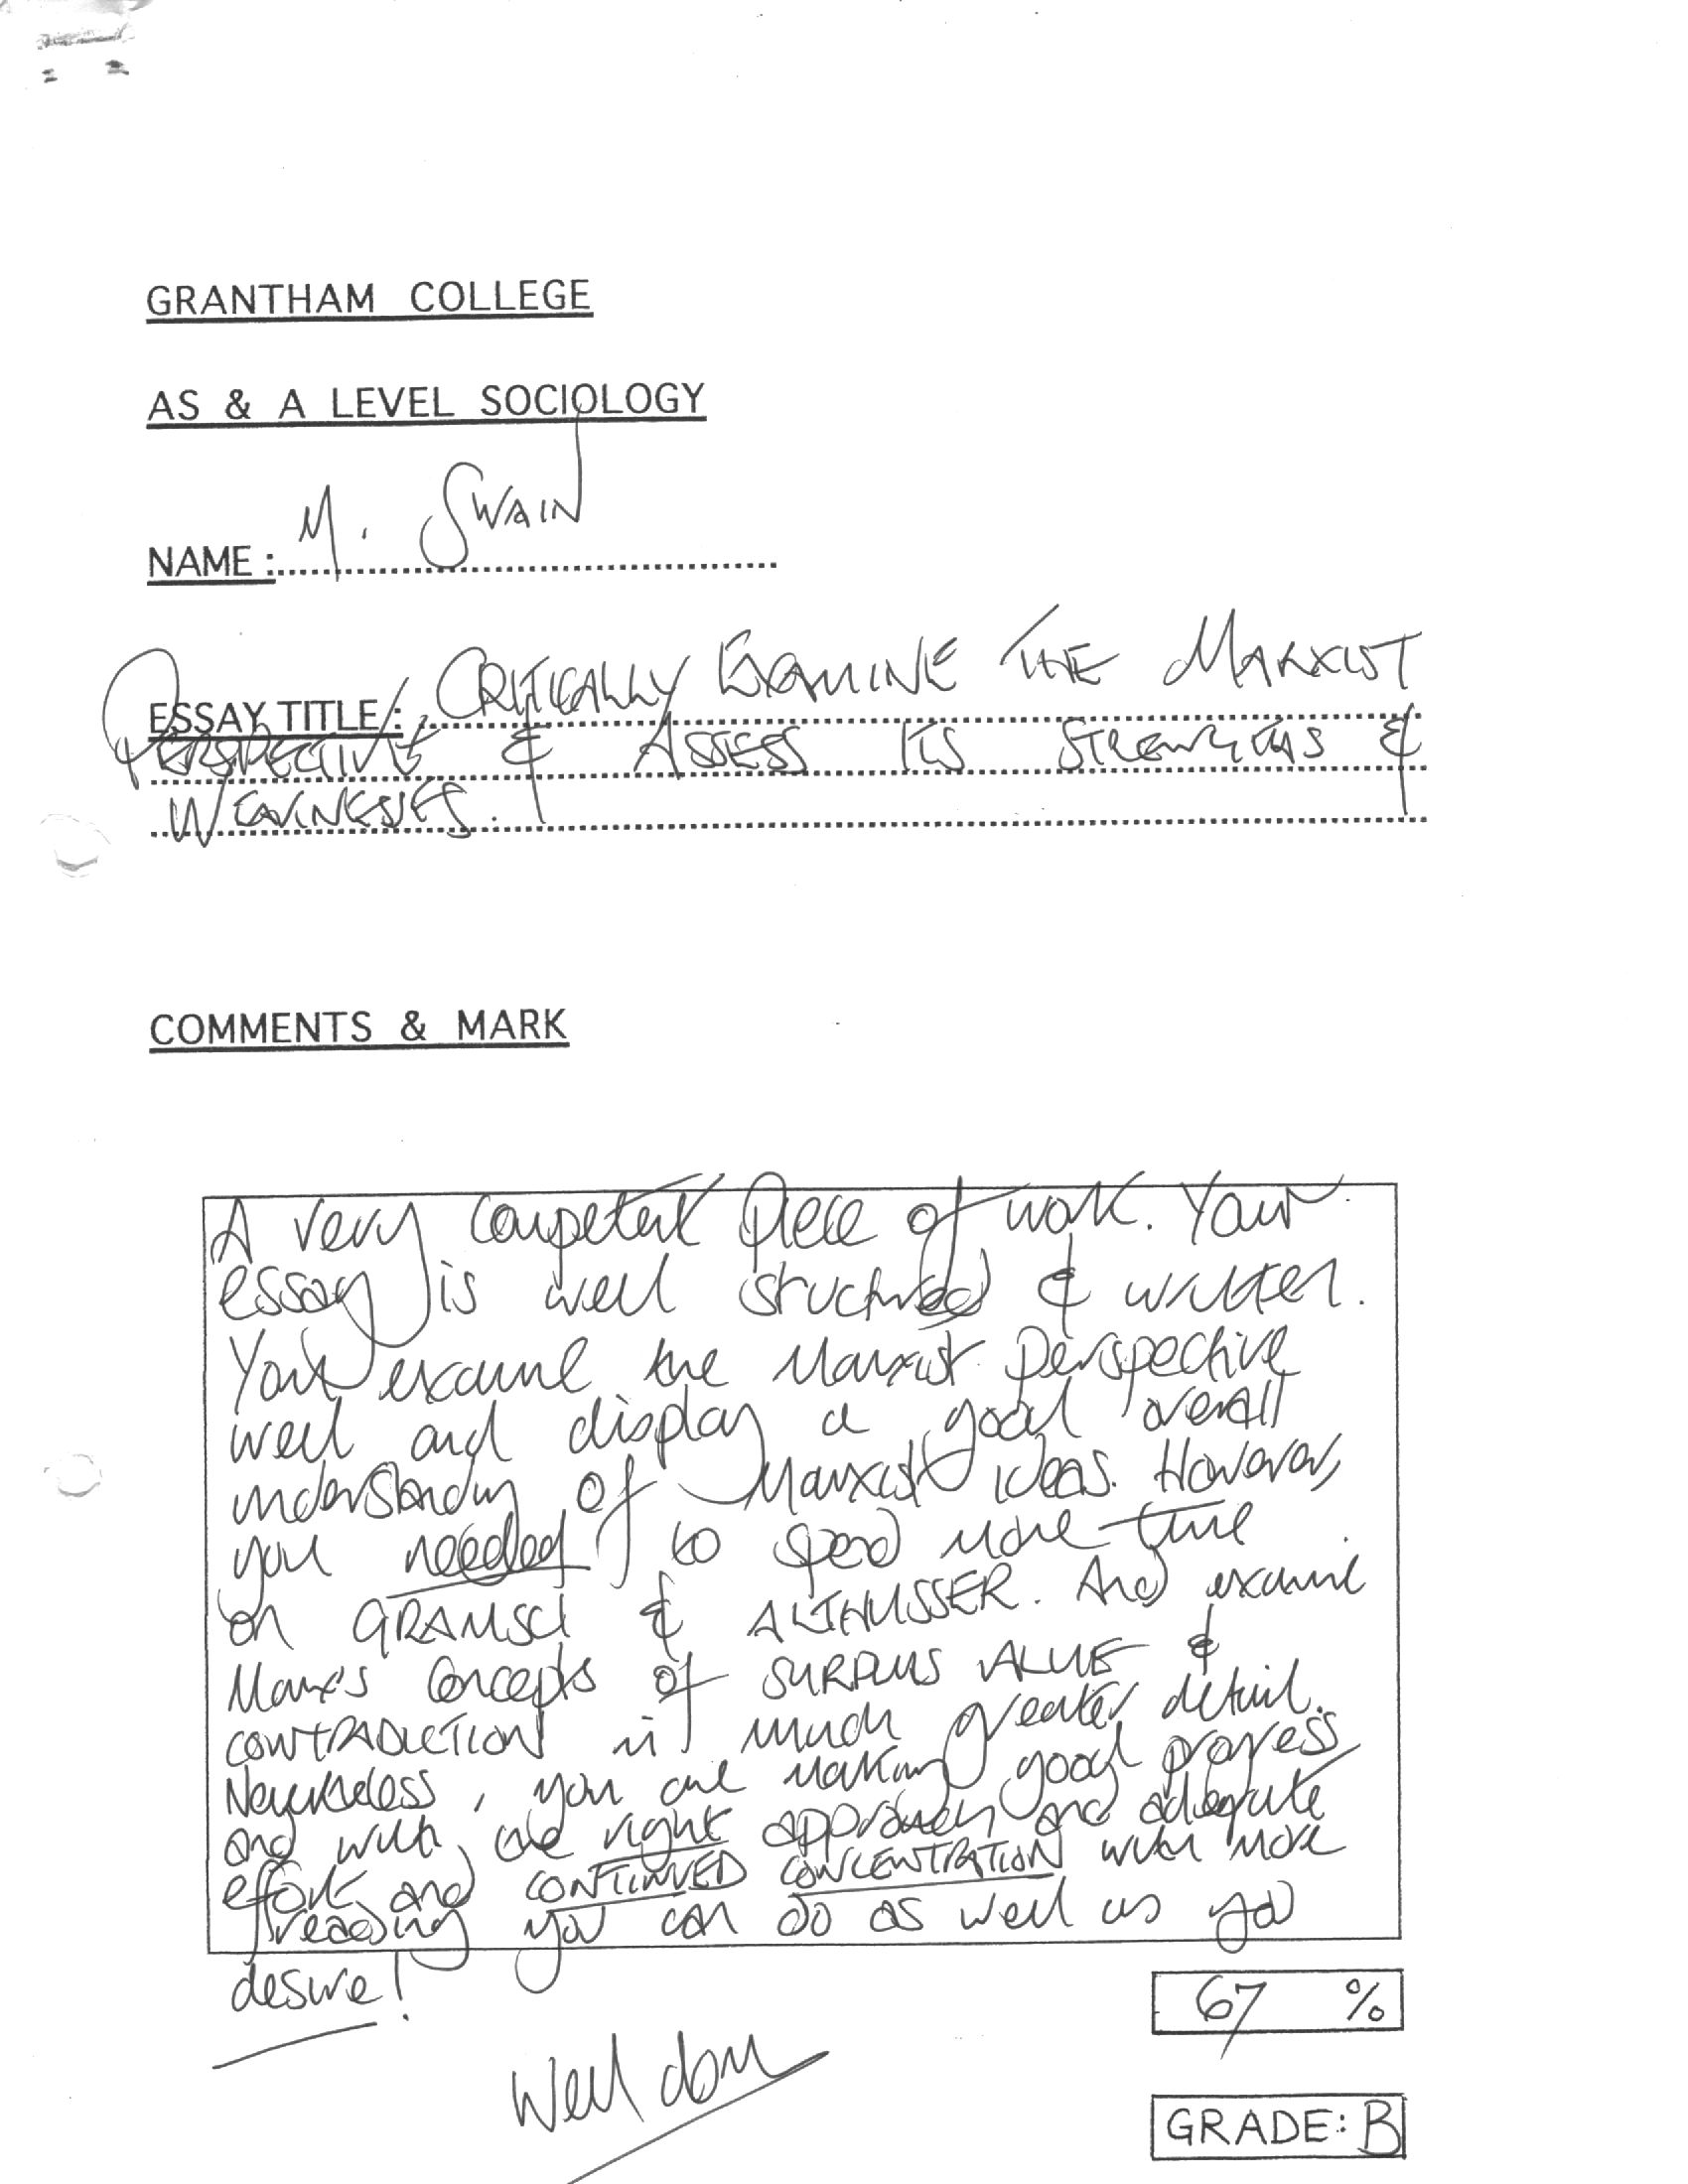 GRANTHAM COLLEGE
AS & A LEVEL SOCIOLOGY
NAME: M. SWAIN
ESSAY TITLE: CRITICALLY EXAMINE THE MARXIST
PERSPECTIVE & ASSESS ITS STRENGTHS &
WEAKNESSES.
COMMENTS & MARK
A very competent piece of work. Your
essay is well structured & written.
You examine the Marxist perspective
well and display a good overall
understanding of Marxist ideas. However,
you needed to spend more time
on GRAMSCI & ALTHUSSER. And examine
Marx's concepts of SURPLUS VALUE &
CONTRADICTION in much greater detail.
Nevertheless, you are making good progress
and with the right approach and adequate
effort and CONTINUED CONCENTRATION with more
reading you can do as well as you
desire!
67 %
Well done
GRADE: B